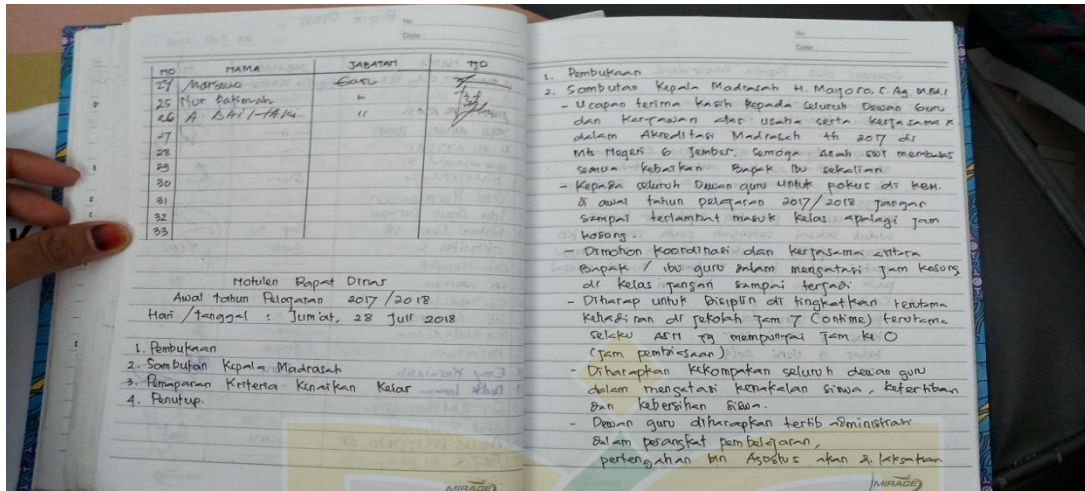 No.
Date :
NO NAMA JABATAN TTD
24 Marsewo Guru
25 Nur Fatimah "
26 A. BAI "
27
28
29
30
31
32
33
Notulen Rapat Dinas
Awal tahun Pelajaran 2017/2018
Hari /tanggal : Jum'at, 28 Juli 2018
1. Pembukaan
2. Sambutan Kepala Madrasah
3. Pemaparan Kriteria Kenaikan Kelas
4. Penutup.
MIRAGE
No.
Date :
1. Pembukaan
2. Sambutan Kepala Madrasah H. S. Ag. M.Pd.I
- Ucapan terima kasih kepada seluruh Dewan Guru
dan Karyawan atas usaha serta kerjasama
dalam Akreditasi Madrasah th 2017 di
Mts Negeri 6 Jember. Semoga Allah SWT membalas
semua kebaikan Bapak Ibu sekalian
- Kepada seluruh Dewan guru untuk fokus di KBM.
di awal tahun pelajaran 2017/2018 jangan
sampai terlambat masuk kelas apalagi jam
kosong.
- Dimohon koordinasi dan kerjasama antara
Bapak / ibu guru dalam mengatasi jam kosong
di kelas jangan sampai terjadi
- Diharap untuk Disiplin di tingkatkan terutama
Kehadiran di sekolah jam 7 (ontime) terutama
selaku ASN yg mempunyai jam ke 0
(jam pembiasaan)
- Diharapkan kekompakan seluruh dewan guru
dalam mengatasi kenakalan siswa, ketertiban
dan kebersihan siswa.
- Dewan guru diharapkan tertib administrasi
dalam perangkat pembelajaran,
pertengahan bln Agustus akan di laksakan
MIRAGE